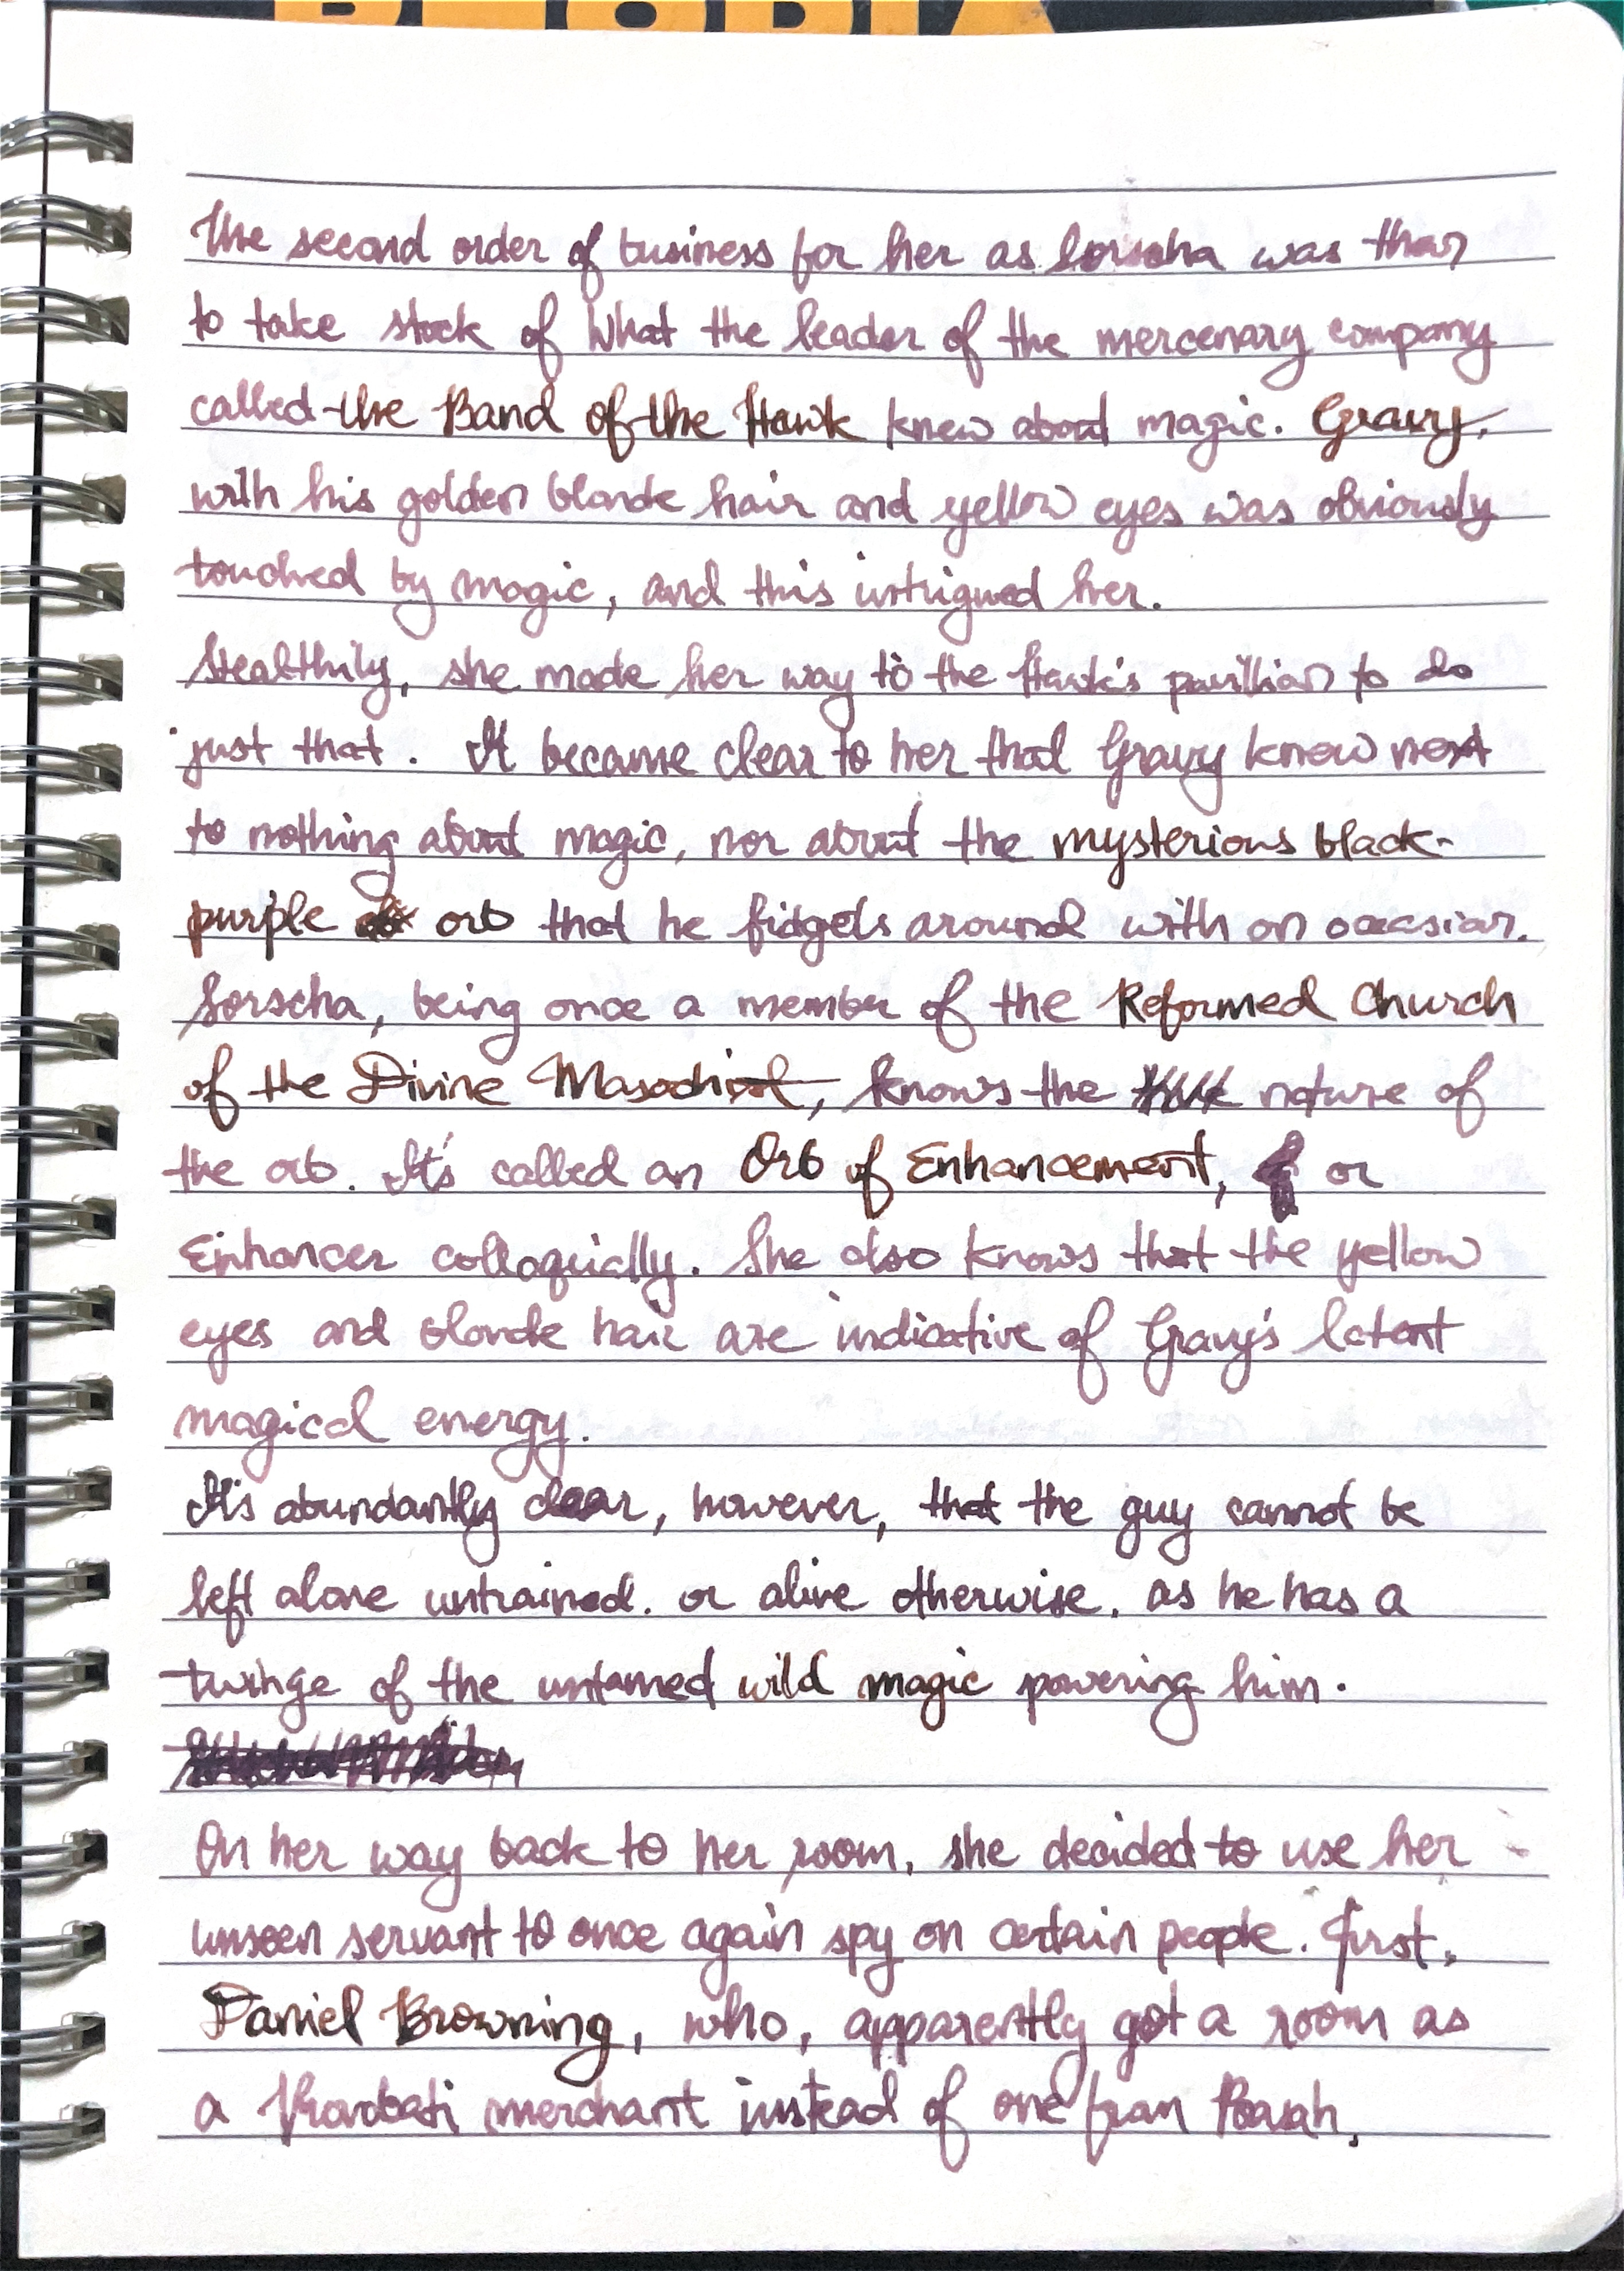 The second order of business for her as Sorscha was then
to take stock of what the leader of the mercenary company
called the Band of the Hawk knew about magic. Gravy,
with his golden blonde hair and yellow eyes was obviously
touched by magic, and this intrigued her.
Stealthily, she made her way to the Hawk's pavillian to do
just that. It became clear to her that Gravy knew next
to nothing about magic, nor about the mysterious black-
purple orb that he fidgets around with on occasion.
Sorscha, being once a member of the Reformed Church
of the Divine Masochist, knows the nature of
the orb. It's called an Orb of Enhancement, or
Enhancer colloquially. She also knows that the yellow
eyes and blonde hair are indicative of Gravy's latent
magical energy.
It's abundantly clear, however, that the guy cannot be
left alone untrained. or alive otherwise. as he has a
twinge of the untamed wild magic powering him.
On her way back to her room, she decided to use her
unseen servant to once again spy on certain people. First,
Daniel Browning, who, apparently got a room as
a merchant instead of one from